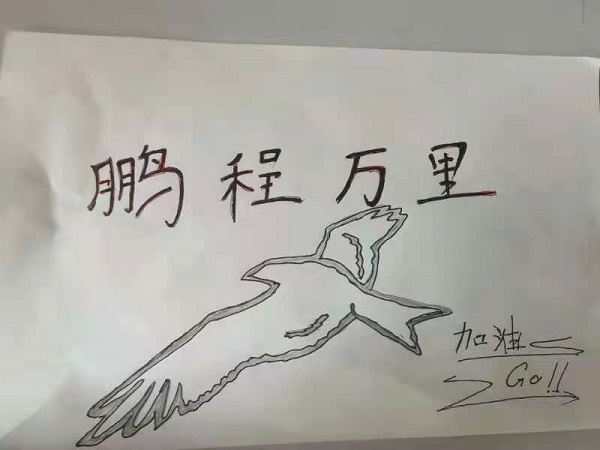 鹏程万里
加油
Go!!